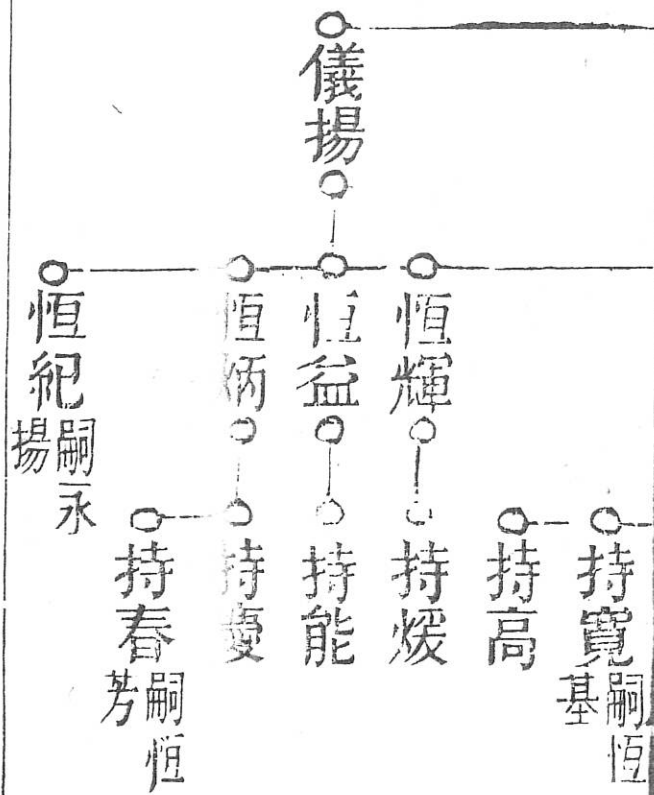 儀揚
恒輝
恒益
恒炳
恒紀 嗣永揚
持寬 嗣恒基
持高
持煖
持能
持憂
持春 嗣恒芳